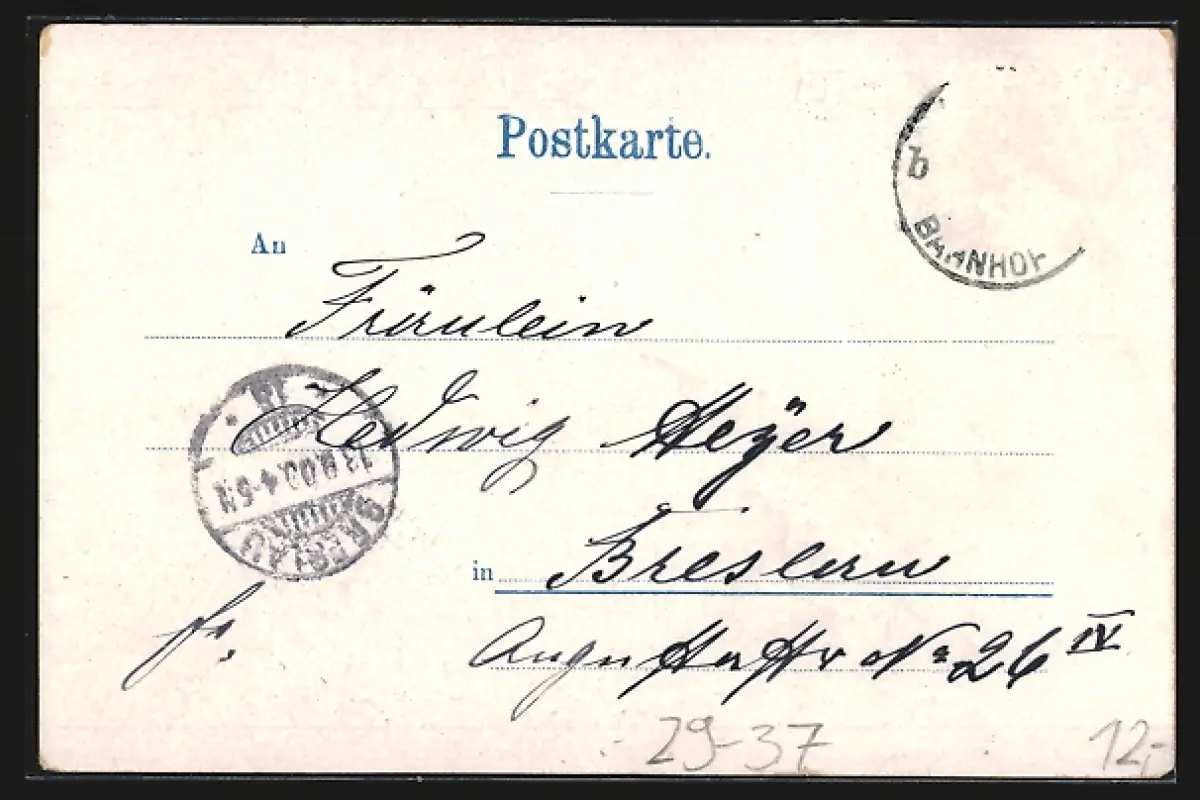 Postkarte.
b
BAHNHOF
An
Fräulein
Hedwig Meÿer
13.9.00.4-5N
BRESLAU
in Breslau
fr.
Augustastr No 26 IV
29-37
12,-